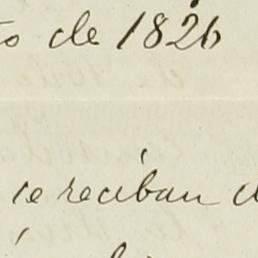 de 1826
se reciban